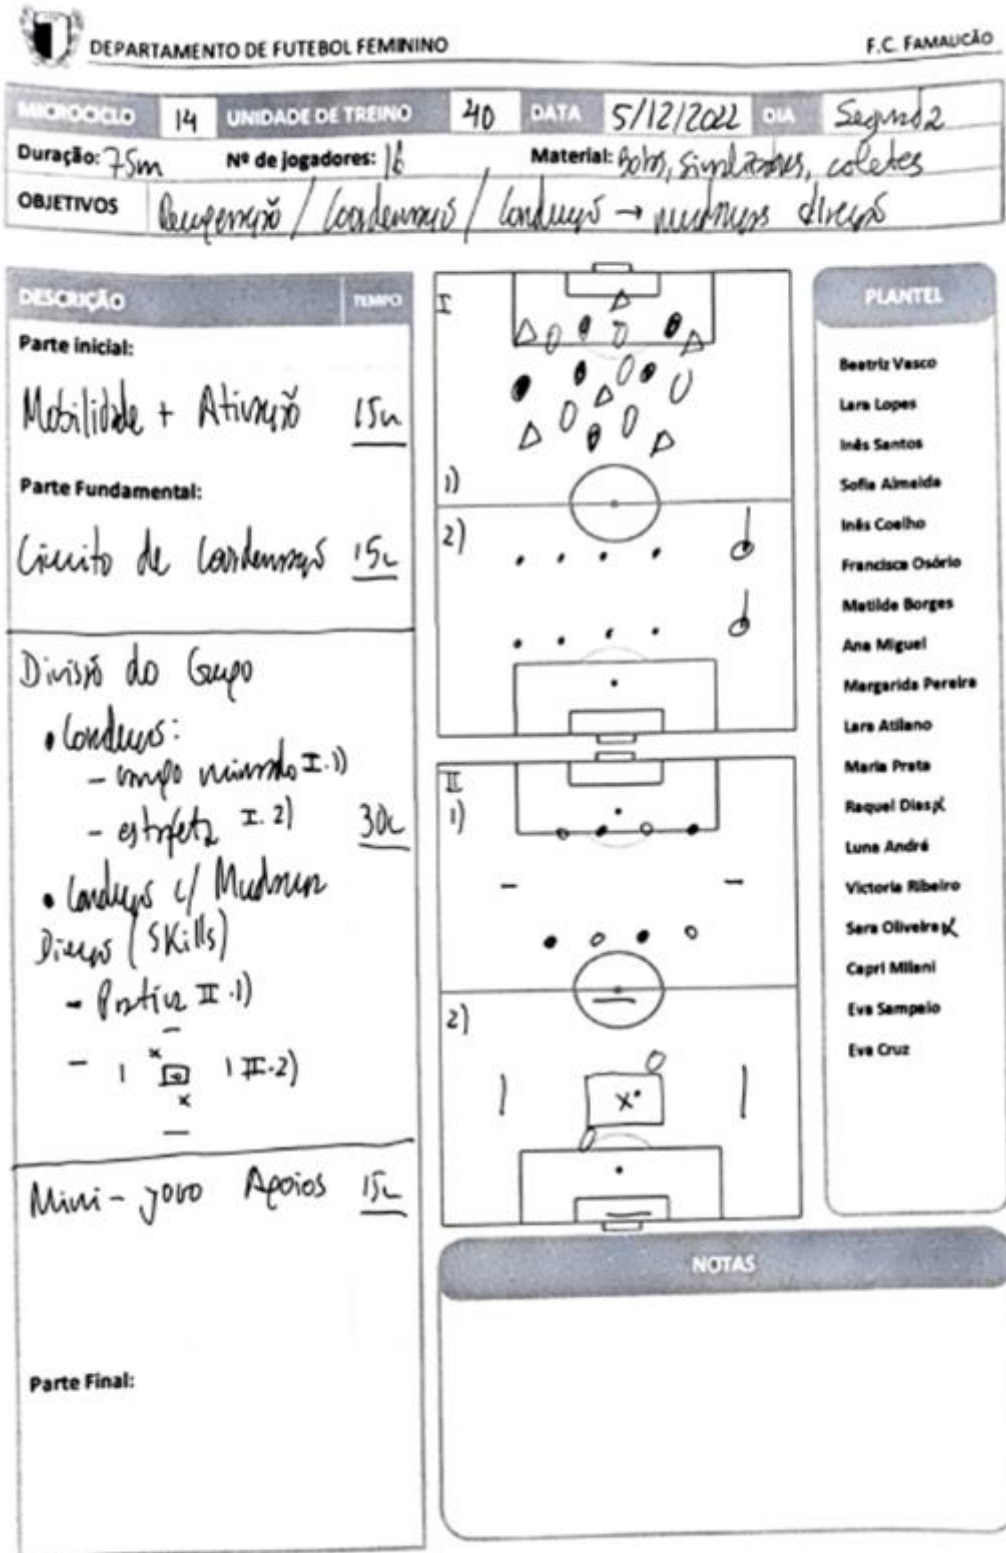 DEPARTAMENTO DE FUTEBOL FEMININO
F.C. FAMALICÃO
MICROCICLO 14 UNIDADE DE TREINO 40 DATA 5/12/2022 DIA Segunda
Duração: 75m Nº de jogadores: 16 Material: Bolas, sinalizadores, coletes
OBJETIVOS Recuperação / Coordenação / Condução → mudanças direção
DESCRIÇÃO TEMPO
Parte inicial:
Mobilidade + Ativação 15m
Parte Fundamental:
Circuito de Coordenação 15m
Divisão do Grupo
• Condução:
- campo minado I.1)
- estafeta I.2) 30m
• Condução c/ Mudança
Direção (Skills)
- Prática II.1)
- II.2)
Mini-jogo Apoios 15m
Parte Final:
I
1)
2)
II
1)
2)
X
PLANTEL
Beatriz Vasco
Lara Lopes
Inês Santos
Sofia Almeida
Inês Coelho
Francisca Osório
Matilde Borges
Ana Miguel
Margarida Pereira
Lara Atilano
Maria Prata
Raquel Dias
Luna André
Victoria Ribeiro
Sara Oliveira
Capri Milani
Eva Sampaio
Eva Cruz
NOTAS